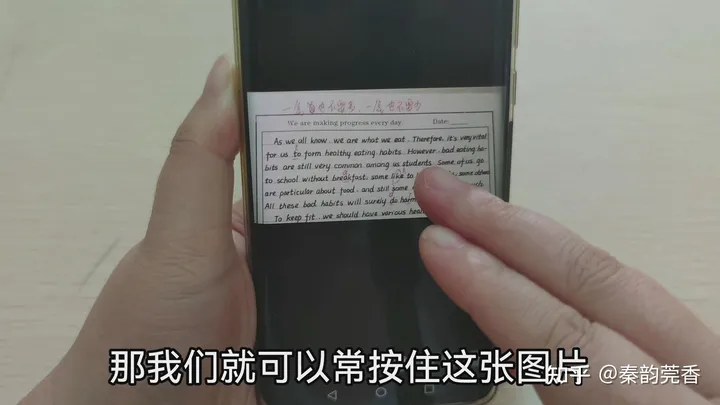 We are making progress every day   Date:
As we all know, we are what we eat. Therefore, it's very vital
for us to form healthy eating habits. However, bad eating ha-
bits are still very common among us students. Some of us go
to school without breakfast, some like to some others
are particular about food, and still some
All these bad habits will surely do harm
To keep fit, we should have various
那我们就可以常按住这张图片
知乎 @秦韵莞香